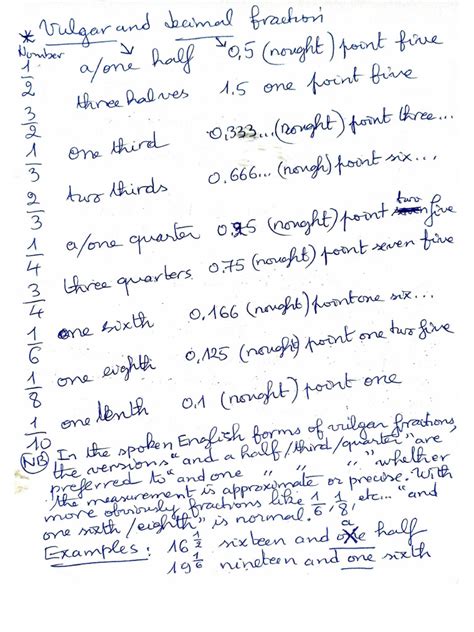 * Vulgar and decimal fraction
Number
1/2 a/one half 0,5 (nought) point five
3/2 three halves 1.5 one point five
1/3 one third 0.333... (nought) point three...
2/3 two thirds 0.666... (nough) point six...
1/4 a/one quarter 0.25 (nought) point two five
3/4 three quarters 0.75 (nought) point seven five
1/6 one sixth 0,166 (nought) point one six...
1/8 one eighth 0,125 (nought) point one two five
1/10 one tenth 0,1 (nought) point one
NB In the spoken English forms of vulgar fractions,
the versions "and a half/third/quarter" are,
preferred to "and one " " " whether
the measurement is approximate or precise. With
more obviously fractions like 1/6, 1/8, etc... "and
one sixth/eighth" is normal.
Examples: 16 1/2 sixteen and a half
19 1/6 nineteen and one sixth